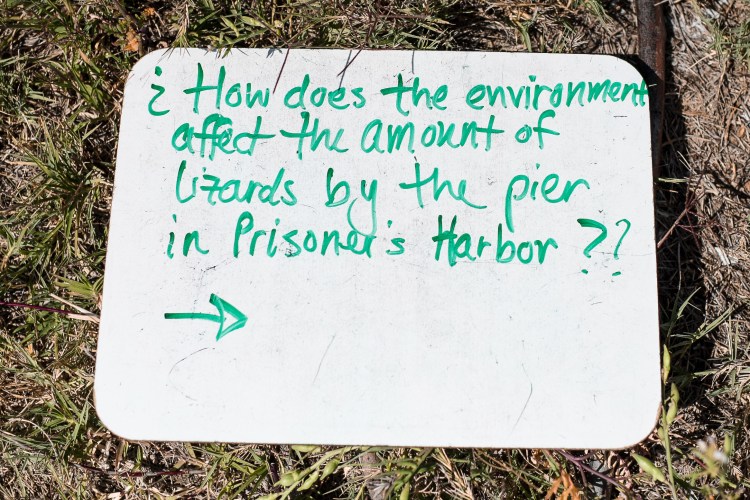 ¿ How does the environment
affect the amount of
lizards by the pier
in Prisoner's Harbor ??
→